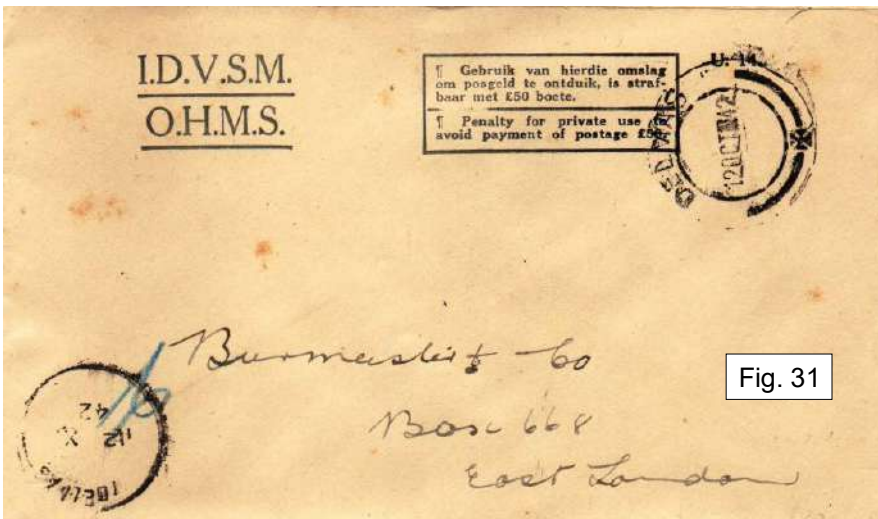 I.D.V.S.M.
O.H.M.S.
¶ Gebruik van hierdie omslag
om posgeld te ontduik, is straf-
baar met £50 boete.
¶ Penalty for private use to
avoid payment of postage £50.
12 OCT 42
Burmeister & Co
Box 668
East London
Fig. 31
12 X
42